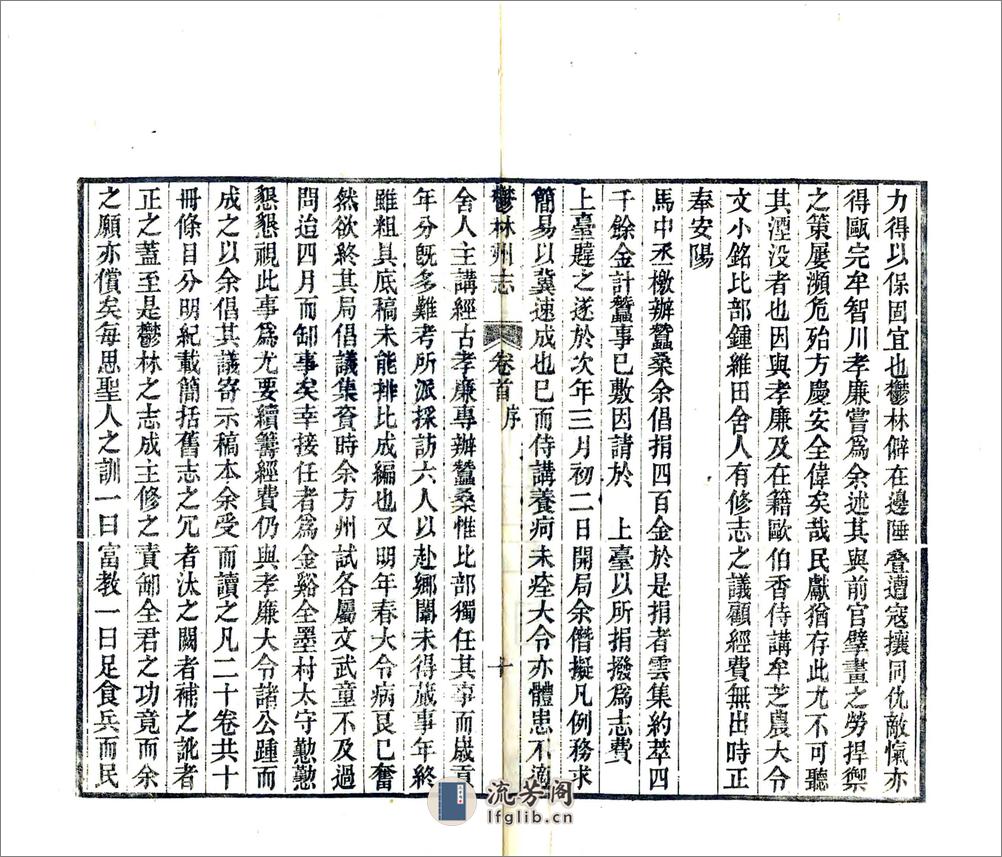 力得以保固宜也鬱林僻在邊陲疊遭寇攘同仇敵愾亦
得歐完牟智川孝廉嘗爲余述其與前官擘畫之勞捍禦
之策屢瀕危殆方慶安全偉矣哉民獻猶存此尤不可聽
其湮没者也因與孝廉及在籍歐伯香侍講牟芝農大令
文小銘比部鍾維田舍人有修志之議顧經費無出時正
奉安陽
馬中丞檄辦蠶桑余倡捐四百金於是捐者雲集約萃四
千餘金計蠶事已敷因請於　上臺以所捐撥爲志費
上臺韙之遂於次年三月初二日開局余僭擬凡例務求
簡易以冀速成也已而侍講養疴未痊大令亦體患不適
鬱林州志　卷首　序　十
舍人主講經古孝廉專辦蠶桑惟比部獨任其事而歲
年分旣多難考所派採訪六人以赴鄉闈未得蕆事年終
雖粗具底稿未能排比成編也又明年春大令病良已奮
然欲終其局倡議集資時余方州試各屬文武童不及過
問迨四月而卸事矣幸接任者爲金谿全墨村太守懃懃
懇懇視此事爲尤要續籌經費仍與孝廉大令諸公踵而
成之以余倡其議寄示稿本余受而讀之凡二十卷共十
冊條目分明紀載簡括舊志之冗者汰之闕者補之訛者
正之蓋至是鬱林之志成主修之責卸全君之功竟而余
之願亦償矣每思聖人之訓一曰富教一曰足食兵而民
流芳阁
lfglib.cn